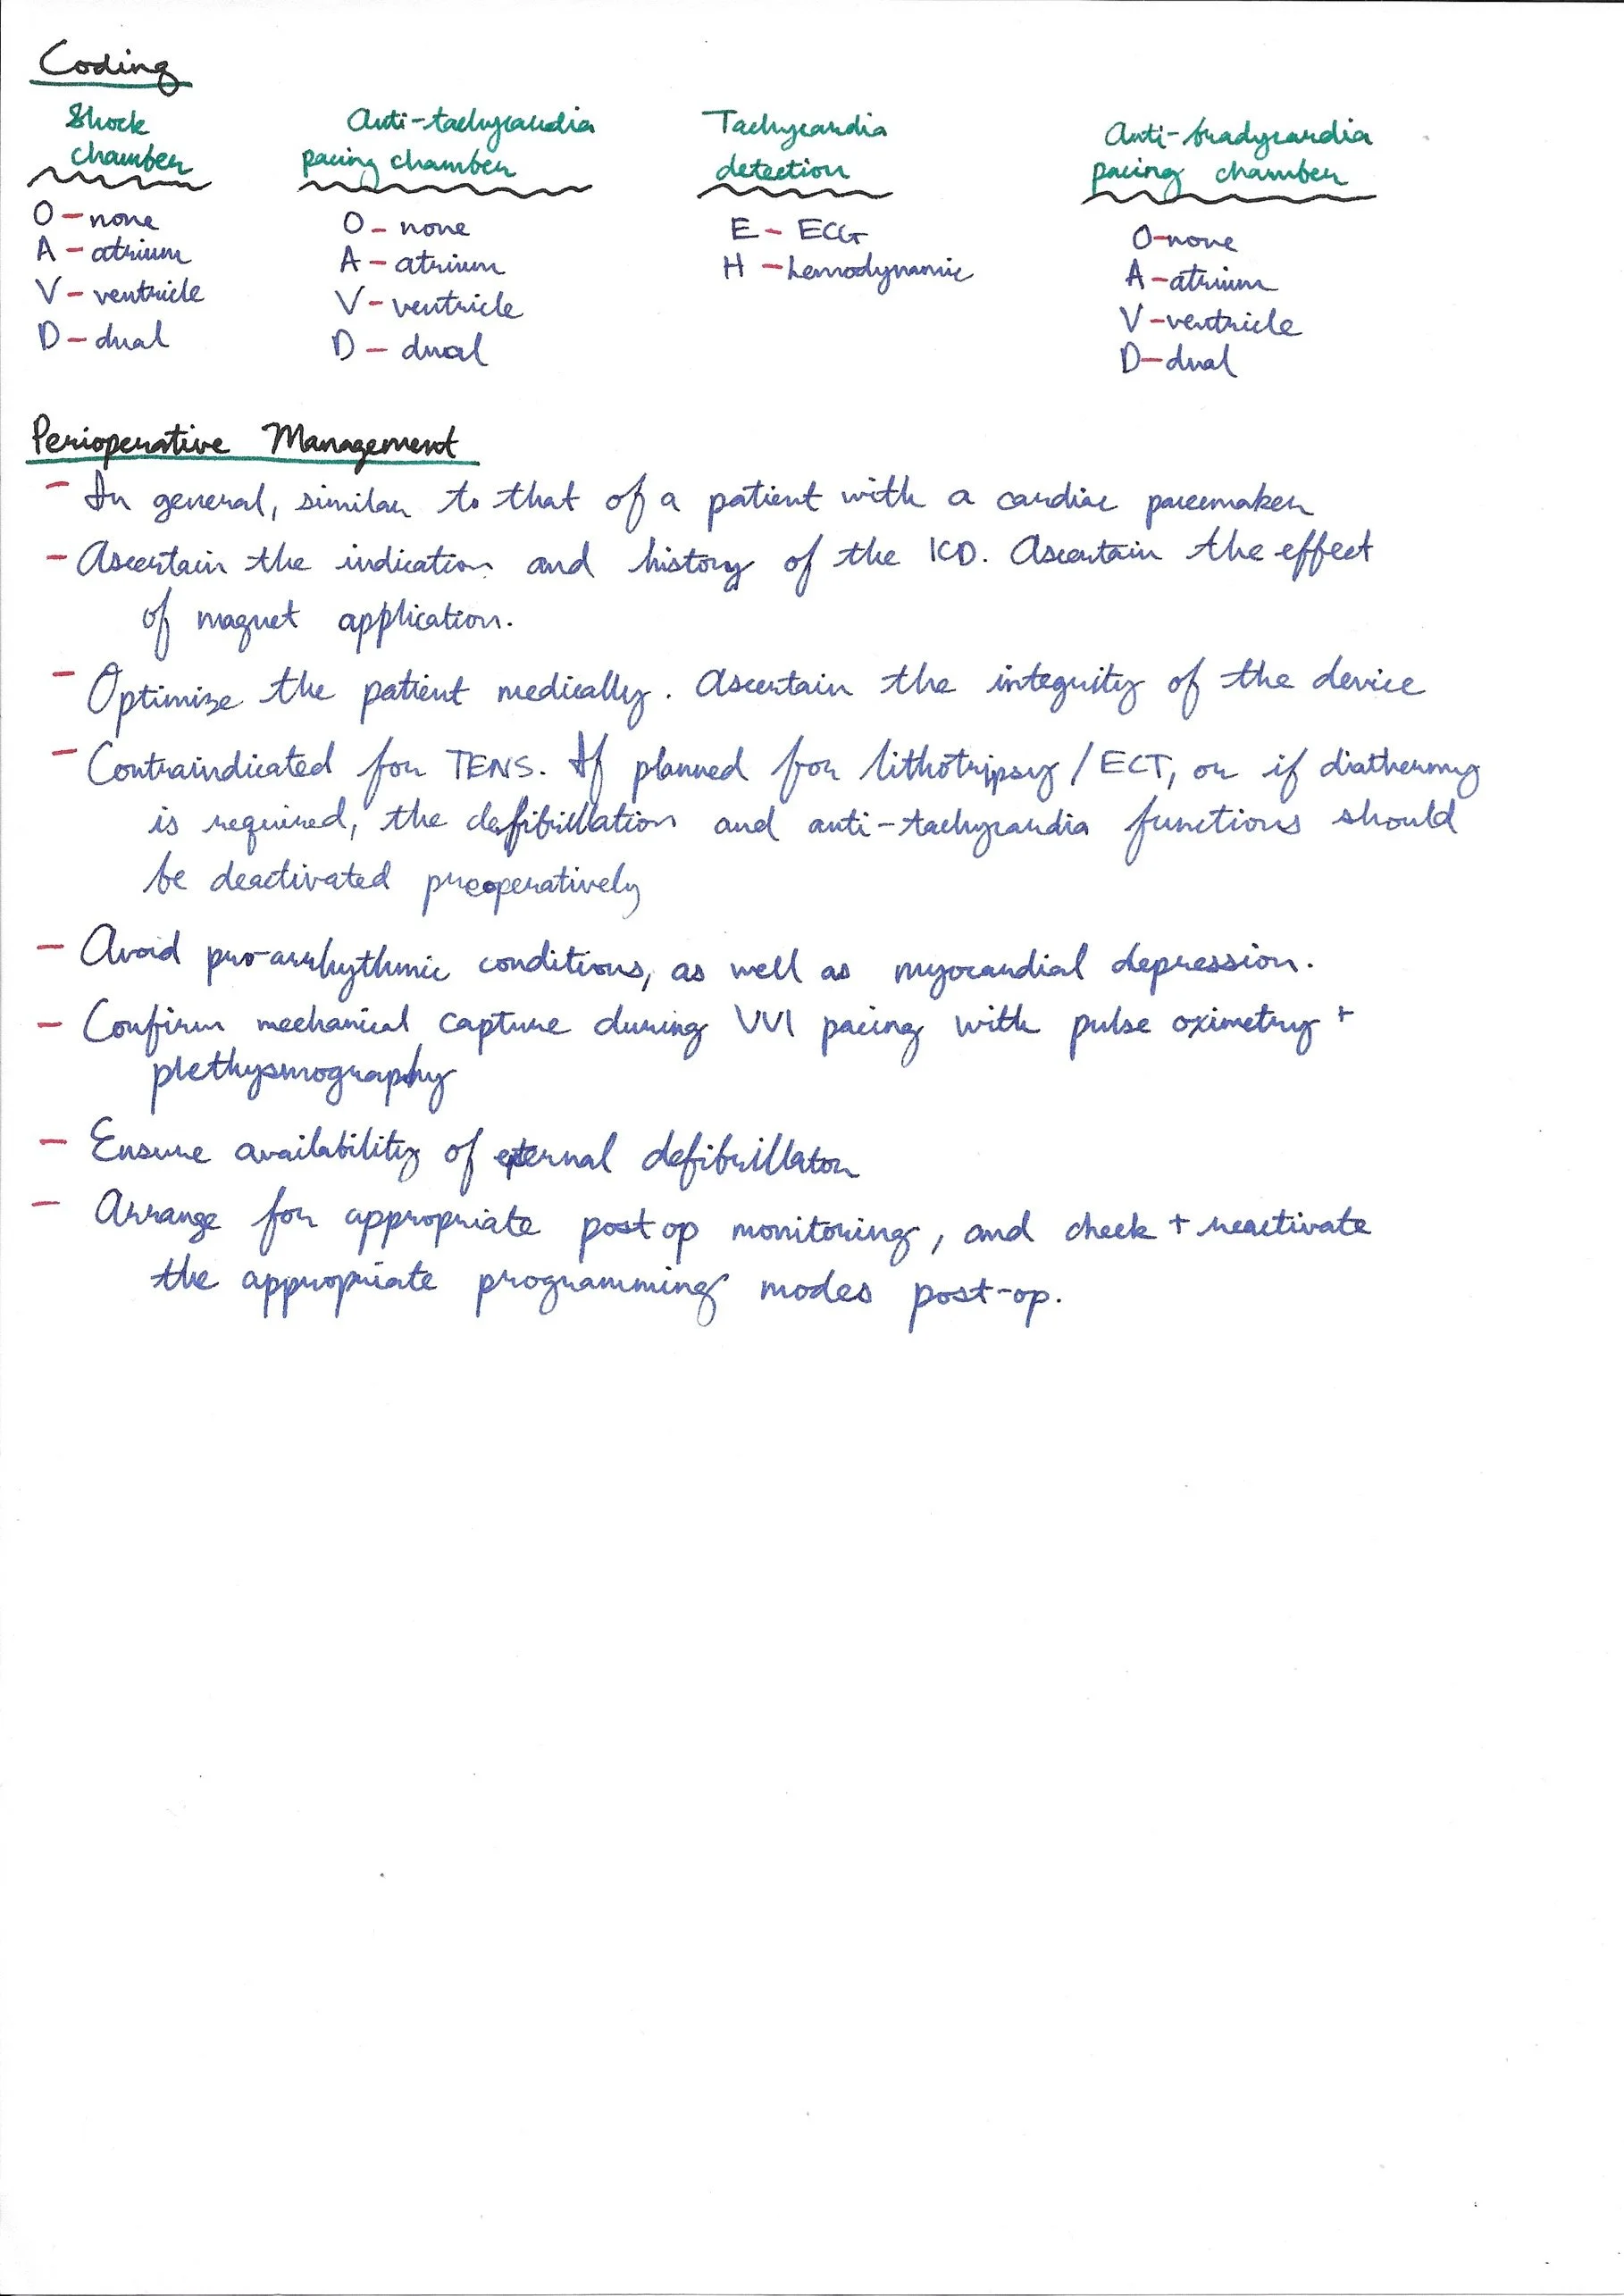 Coding
Shock Anti-tachycardia Tachycardia Anti-bradycardia
chamber pacing chamber detection pacing chamber
O - none O - none E - ECG O - none
A - atrium A - atrium H - hemodynamic A - atrium
V - ventricle V - ventricle V - ventricle
D - dual D - dual D - dual
Perioperative Management
- In general, similar to that of a patient with a cardiac pacemaker
- Ascertain the indication and history of the ICD. Ascertain the effect
of magnet application.
- Optimise the patient medically. Ascertain the integrity of the device
- Contraindicated for TENS. If planned for lithotripsy / ECT, or if diathermy
is required, the defibrillation and anti-tachycardia functions should
be deactivated preoperatively
- Avoid pro-arrhythmic conditions, as well as myocardial depression.
- Confirm mechanical capture during VVI pacing with pulse oximetry +
plethysmography
- Ensure availability of external defibrillator
- Arrange for appropriate post op monitoring, and check + reactivate
the appropriate programming modes post-op.